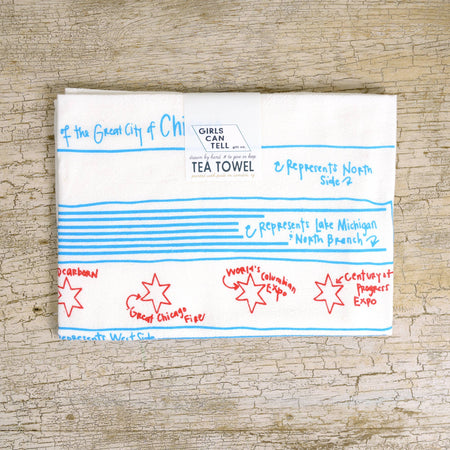 of the Great City of Chi
GIRLS
CAN
TELL
TEA TOWEL
Represents North
Side
Represents Lake Michigan
& North Branch
earborn
Great Chicago
Fire
World's
Columbian
Expo
Century of
Progress
Expo
epresents West Side